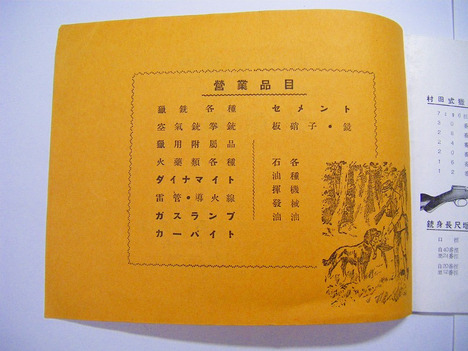 營業品目
獵銃各種
空氣銃拳銃
獵用附屬品
火藥類各種
ダイナマイト
雷管・導火線
ガスランプ
カーバイト
セメント
板硝子・鏡
各種機械油
石油揮發油
村田式
銃身長尺